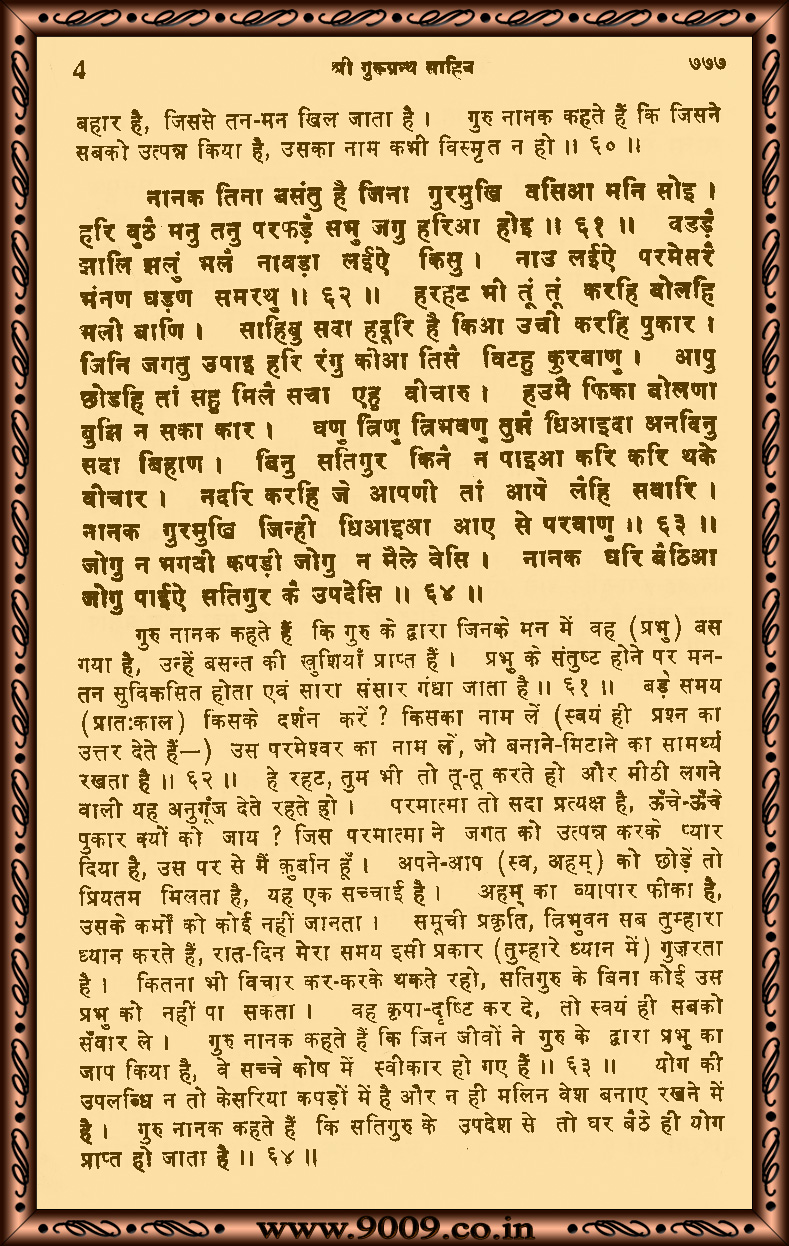 4 श्री गुरूग्रन्थ साहिब ७७७
बहार है, जिससे तन-मन खिल जाता है। गुरु नानक कहते हैं कि जिसने
सबको उत्पन्न किया है, उसका नाम कभी विस्मृत न हो॥ ६०॥
नानक तिना बसंतु है जिना गुरमुखि वसिआ मनि सोइ।
हरि वुठै मनु तनु परफड़ै सभु जगु हरिआ होइ॥ ६१॥ वडड़ै
झालि झलुं भलै नावड़ा लईऐ किसु। नाउ लईऐ परमेसरै
भंनण घड़ण समरथु॥ ६२॥ हरहट भी तूं तूं करहि बोलहि
भली बाणि। साहिबु सदा हदूरि है किआ उची करहि पुकार।
जिनि जगतु उपाइ हरि रंगु कोआ तिसै विटहु कुरबाणु। आपु
छोडहि तां सहु मिलै सचा एहु वीचारु। हउमै फिका बोलणा
बुझि न सका कार। वणु त्रिणु त्रिभवणु तुझै धिआइदा अनदिनु
सदा विहाण। बिनु सतिगुर किनै न पाइआ करि करि थके
वीचार। नदरि करहि जे आपणी तां आपे लैहि सवारि।
नानक गुरमुखि जिन्ही धिआइआ आए से परवाणु॥ ६३॥
जोगु न भगवी कपड़ी जोगु न मैले वेसि। नानक घरि बैठिआ
जोगु पाईऐ सतिगुर कै उपदेसि॥ ६४॥
गुरु नानक कहते हैं कि गुरु के द्वारा जिनके मन में वह (प्रभु) बस
गया है, उन्हें बसन्त की खुशियाँ प्राप्त हैं। प्रभु के संतुष्ट होने पर मन-
तन सुविकसित होता एवं सारा संसार गंधा जाता है॥ ६१॥ बड़े समय
(प्रात:काल) किसके दर्शन करें? किसका नाम लें (स्वयं ही प्रश्न का
उत्तर देते हैं—) उस परमेश्वर का नाम लें, जो बनाने-मिटाने का सामर्थ्य
रखता है॥ ६२॥ हे रहट, तुम भी तो तू-तू करते हो और मीठी लगने
वाली यह अनुगूँज देते रहते हो। परमात्मा तो सदा प्रत्यक्ष है, ऊँचे-ऊँचे
पुकार क्यों की जाय? जिस परमात्मा ने जगत को उत्पन्न करके प्यार
दिया है, उस पर से मैं कुर्बान हूँ। अपने-आप (स्व, अहम्) को छोड़ें तो
प्रियतम मिलता है, यह एक सच्चाई है। अहम् का व्यापार फीका है,
उसके कर्मों को कोई नहीं जानता। समूची प्रकृति, त्रिभुवन सब तुम्हारा
ध्यान करते हैं, रात-दिन मेरा समय इसी प्रकार (तुम्हारे ध्यान में) गुज़रता
है। कितना भी विचार कर-करके थकते रहो, सतिगुरु के बिना कोई उस
प्रभु को नहीं पा सकता। वह कृपा-दृष्टि कर दे, तो स्वयं ही सबको
सँवार ले। गुरु नानक कहते हैं कि जिन जीवों ने गुरु के द्वारा प्रभु का
जाप किया है, वे सच्चे कोष में स्वीकार हो गए हैं॥ ६३॥ योग की
उपलब्धि न तो केसरिया कपड़ों में है और न ही मलिन वेश बनाए रखने में
है। गुरु नानक कहते हैं कि सतिगुरु के उपदेश से तो घर बैठे ही योग
प्राप्त हो जाता है॥ ६४॥
www.9009.co.in